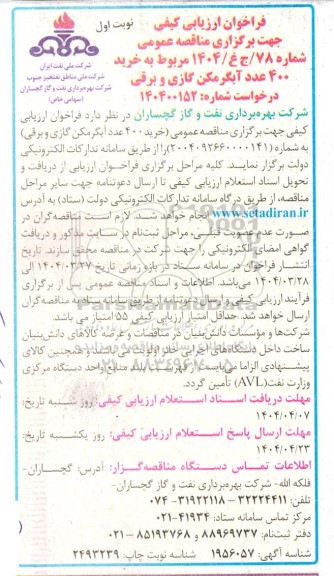 نوبت اول
فراخوان ارزیابی کیفی
جهت برگزاری مناقصه عمومی
شماره ۷۸/ج غ/۱۴۰۴ مربوط به خرید
۴۰۰ عدد آبگرمکن گازی و برقی
درخواست شماره: ۱۴۰۴۰۰۱۵۲
شرکت ملی نفت ایران
شرکت ملی مناطق نفتخیز جنوب
شرکت بهره‌برداری نفت و گاز گچساران
(سهامی خاص)
شرکت بهره‌برداری نفت و گاز گچساران در نظر دارد فراخوان ارزیابی
کیفی جهت برگزاری مناقصه عمومی (خرید ۴۰۰ عدد آبگرمکن گازی و برقی)
به شماره (۲۰۰۴۰۹۲۶۶۰۰۰۰۱۴۱) را از طریق سامانه تدارکات الکترونیکی
دولت برگزار نمایند. کلیه مراحل برگزاری فراخوان ارزیابی از دریافت و
تحویل اسناد استعلام ارزیابی کیفی تا ارسال دعوتنامه جهت سایر مراحل
مناقصه، از طریق درگاه سامانه تدارکات الکترونیکی دولت (ستاد) به آدرس
www.setadiran.ir انجام خواهد شد. لازم است مناقصه‌گران در
صورت عدم عضویت قبلی، مراحل ثبت‌نام در سایت مذکور و دریافت
گواهی امضای الکترونیکی را جهت شرکت در مناقصه محقق سازند. تاریخ
انتشار فراخوان در سامانه ستاد در بازه زمانی تاریخ ۱۴۰۴/۰۳/۲۷ الی
۱۴۰۴/۰۳/۲۸ می‌باشد. اطلاعات و اسناد مناقصه عمومی پس از برگزاری
فرآیند ارزیابی کیفی و ارسال دعوتنامه از طریق سامانه ستاد به مناقصه‌گران
ارسال خواهد شد. حداقل امتیاز ارزیابی کیفی ۵۵ امتیاز می باشد.
شرکت‌ها و مؤسسات دانش‌بنیان در مناقصات و عرضه کالاهای دانش‌بنیان
ساخت داخل دستگاههای اجرایی حائز اولویت می باشند و همچنین کالای
پیشنهادی الزاما می‌بایست از فهرست بلند منابع واحد دستگاه مرکزی
وزارت نفت (AVL) تأمین گردد.
مهلت دریافت اسناد استعلام ارزیابی کیفی: روز شنبه تاریخ:
۱۴۰۴/۰۴/۰۷
مهلت ارسال پاسخ استعلام ارزیابی کیفی: روز یکشنبه تاریخ:
۱۴۰۴/۰۴/۲۲
اطلاعات تماس دستگاه مناقصه‌گزار: آدرس: گچساران-
فلکه الله- شرکت بهره‌برداری نفت و گاز گچساران-
تلفن: ۳۲۲۲۴۴۱۱ - ۳۱۹۲۲۱۱۸ - ۰۷۴
مرکز تماس سامانه ستاد: ۴۱۹۳۴-۰۲۱
دفتر ثبت‌نام: ۸۸۹۶۹۷۳۷ و ۸۵۱۹۳۷۶۸-۰۲۱
شناسه آگهی: ۱۹۵۶۰۵۷ شناسه نوبت چاپ: ۲۴۹۳۲۳۹